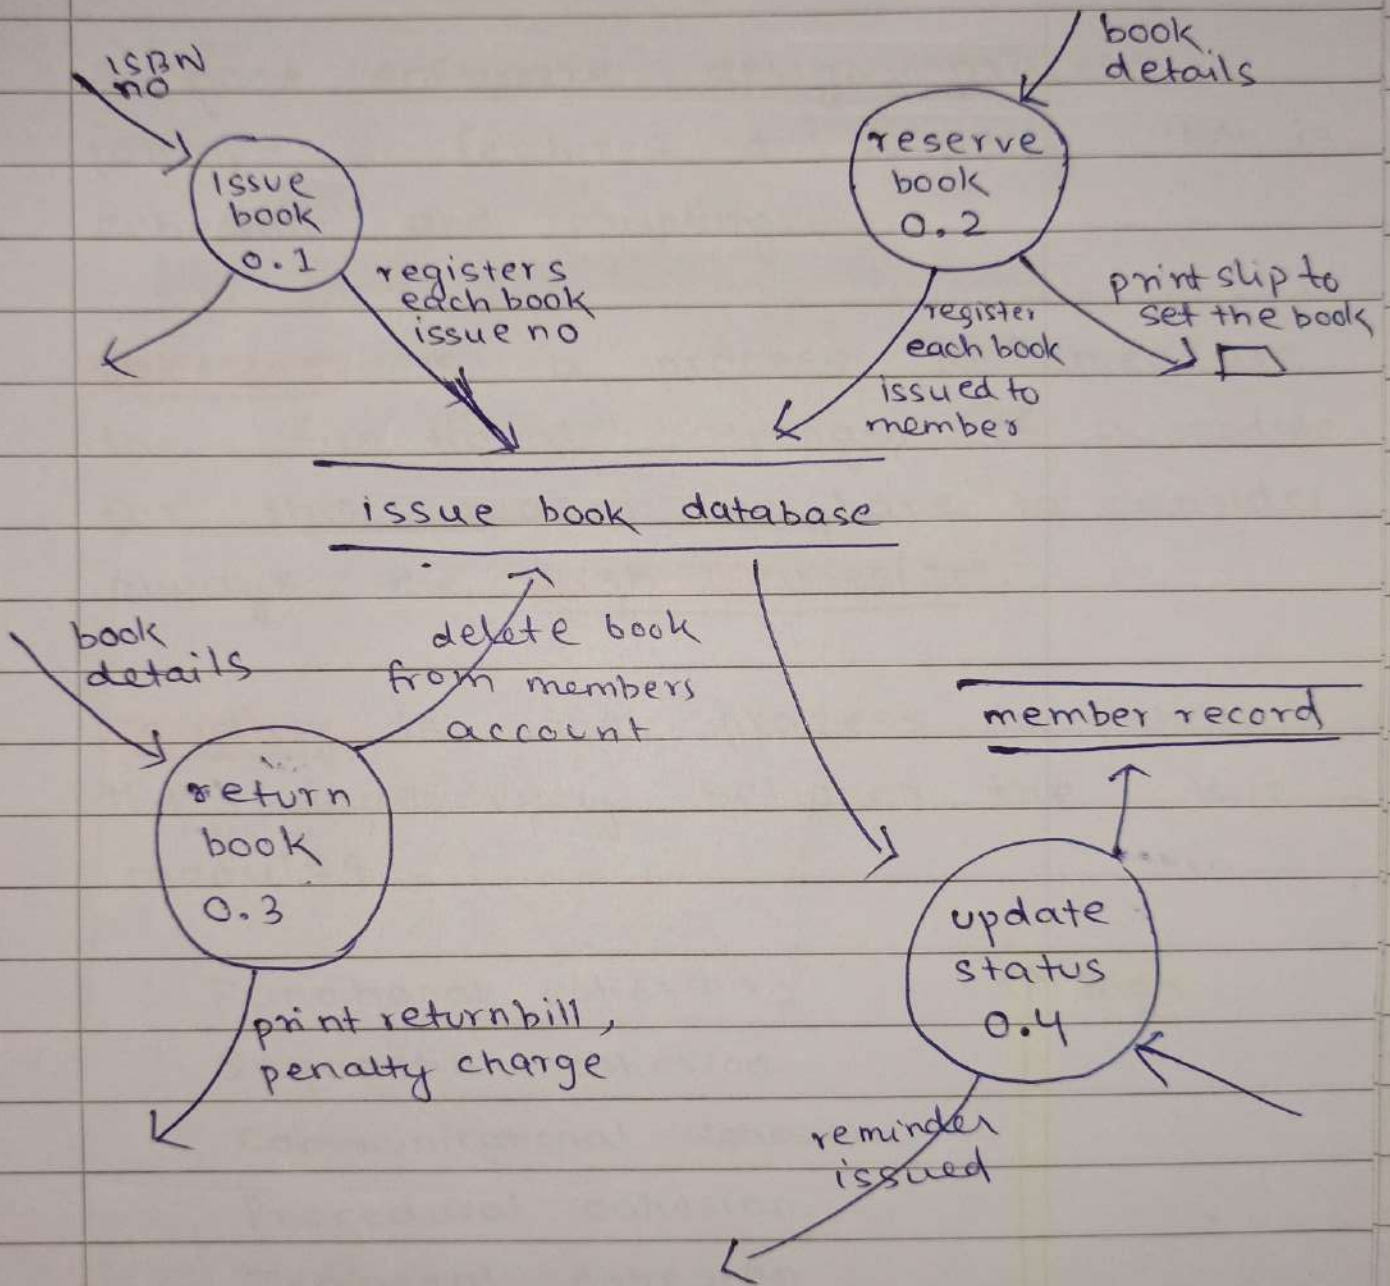 ISBN
no
book
details
issue
book
0.1
reserve
book
0.2
registers
each book
issue no
register
each book
issued to
member
print slip to
set the book
issue book database
book
details
delete book
from members
account
member record
return
book
0.3
update
status
0.4
print return bill,
penalty charge
reminder
issued